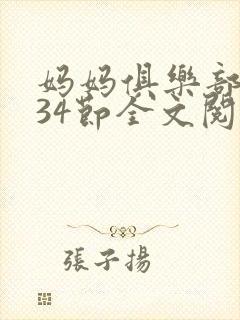 妈妈俱樂部
34節全文閱
張子揚